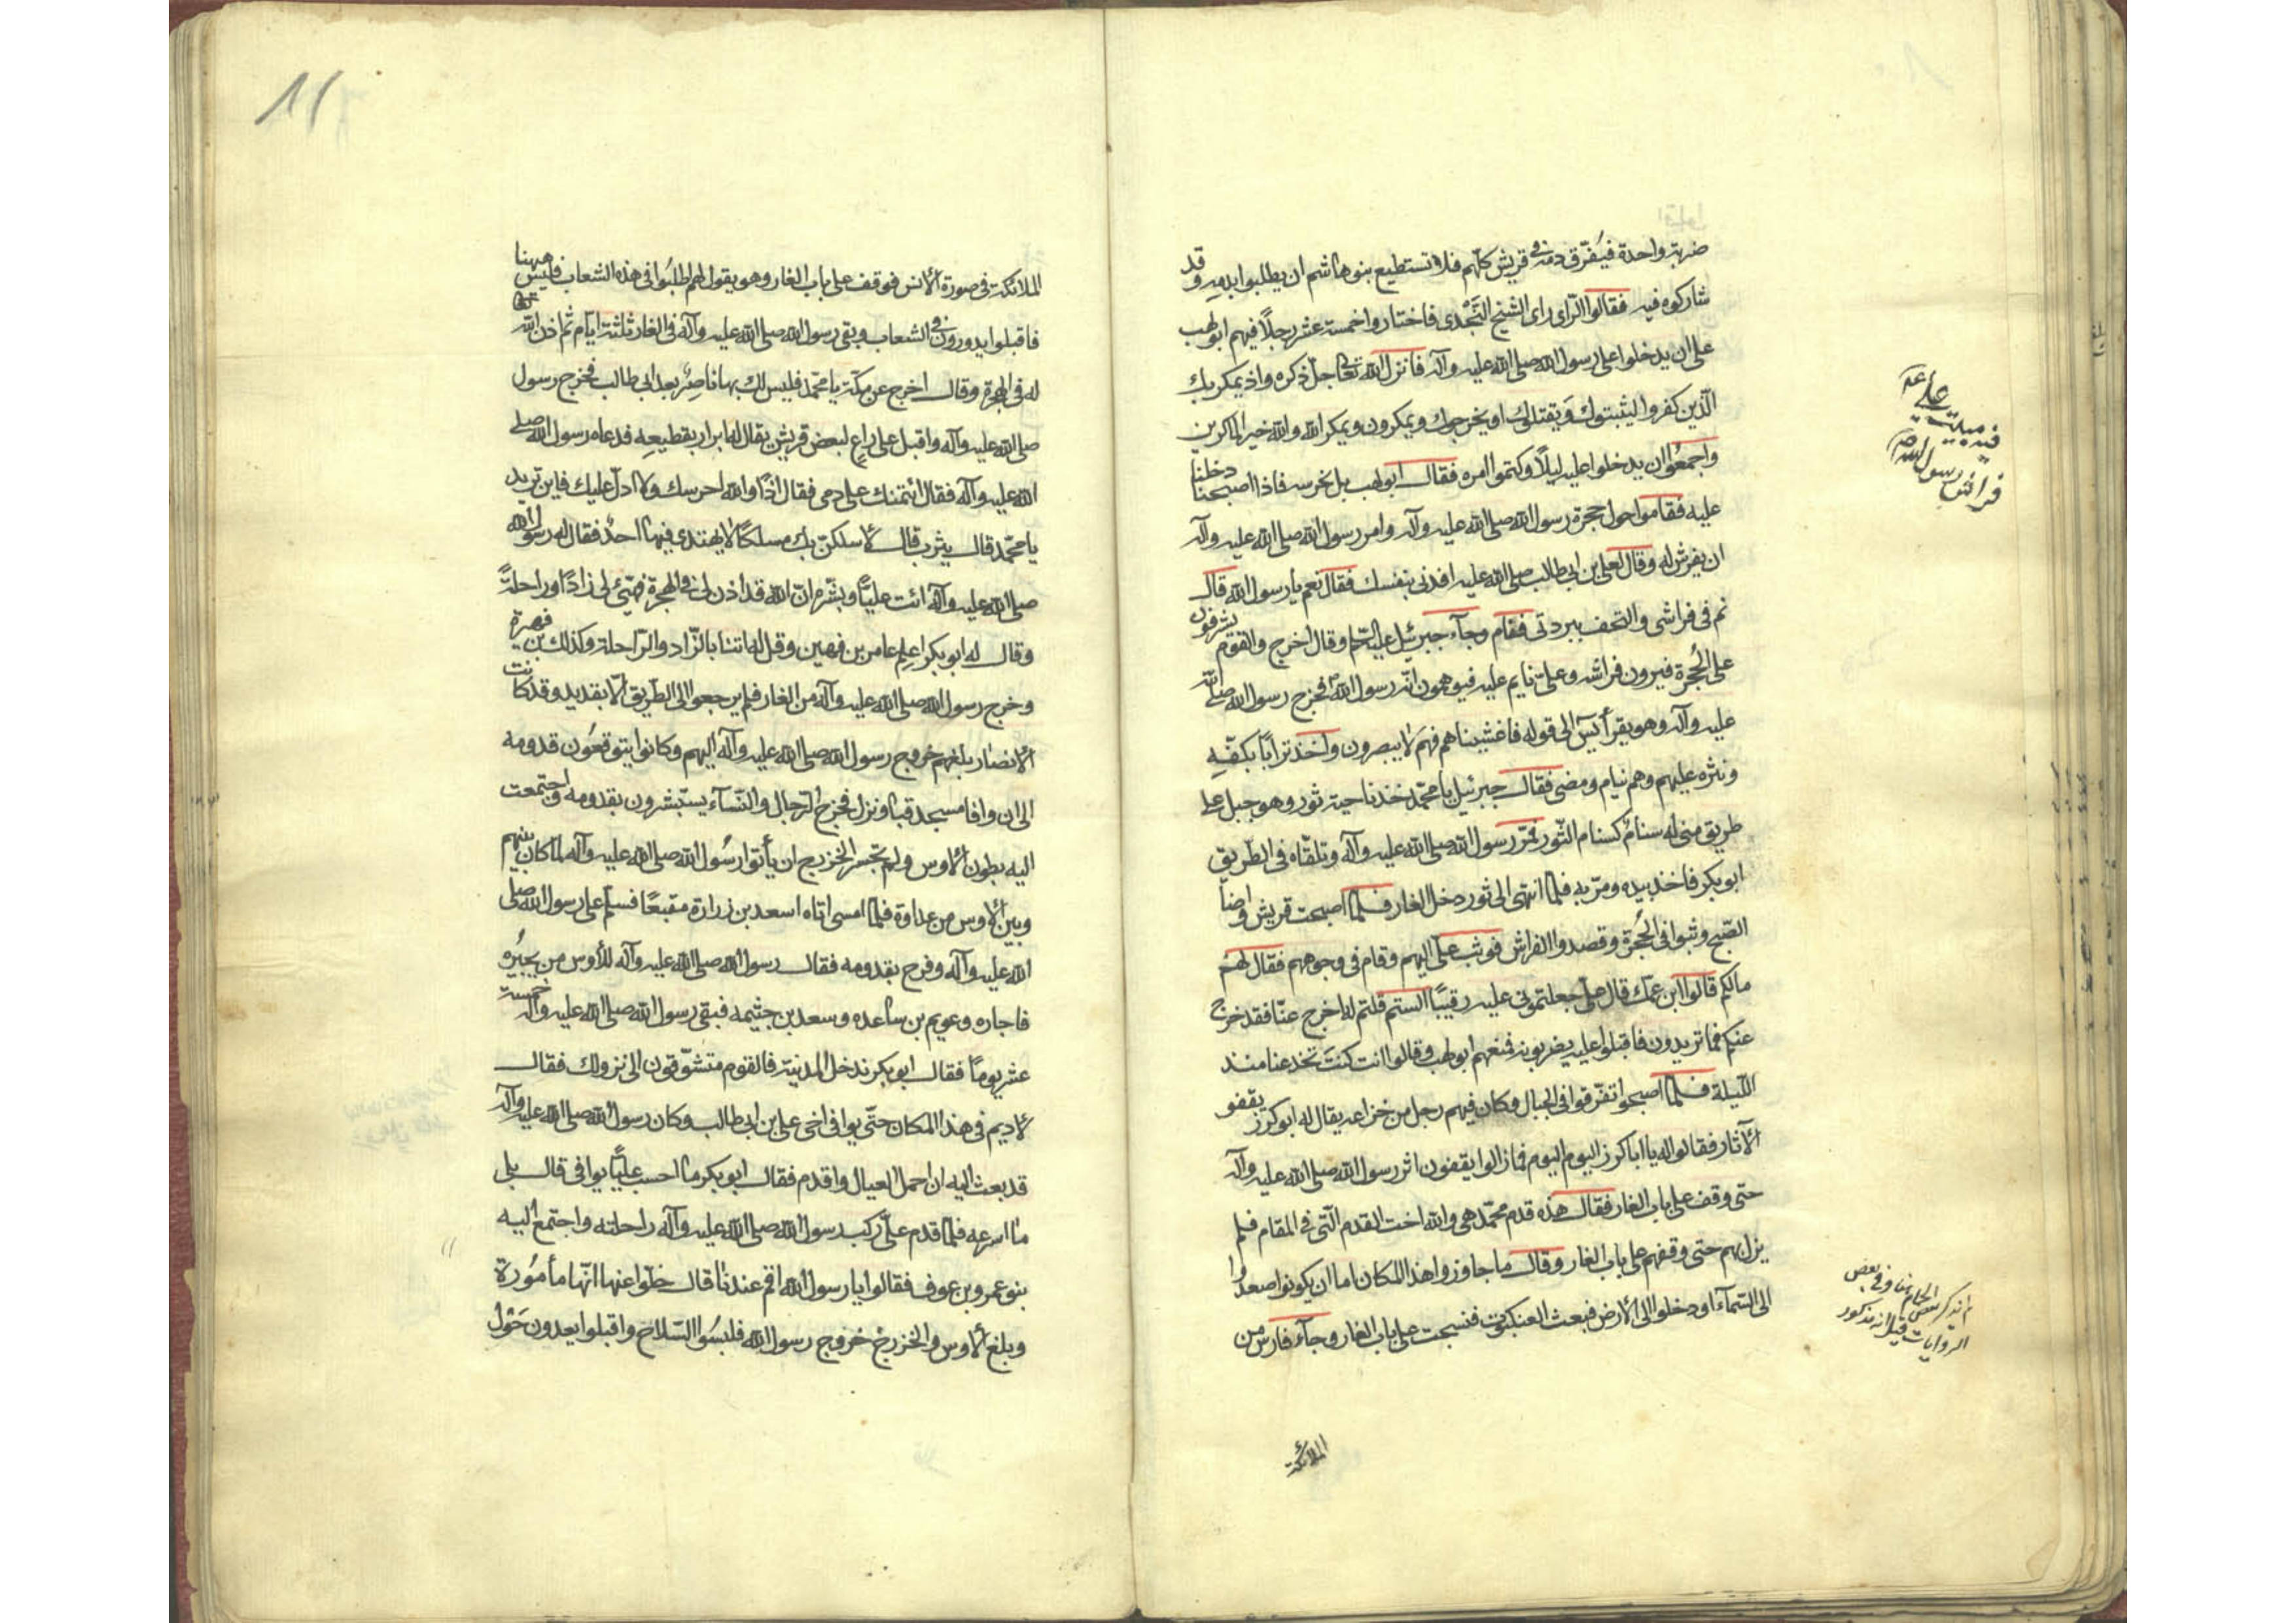 ضربة واحدة فيتفرق دمه في قريش كلهم فلا تستطيع بنو هاشم ان يطلبوا بدمه وقد
شاركوه فيه فقالوا الرّاى راى الشيخ النَّجْدى فاختاروا خمسة عشر رجلاً فيهم ابولهب
على ان يدخلوا على رسول الله صلى الله عليه وآله فانزل الله تعالى جلّ ذكره واذ يمكر بك
الّذين كفروا ليثبتوك او يقتلوك او يخرجوك ويمكرون ويمكر الله والله خير الماكرين
واجمعُوا ان يدخلوا عليه ليلاً وكتموا امره فقال ابولهب بل نحرسه فاذا اصبحنا دخلنا
عليه فقاموا حول حجرة رسول الله صلى الله عليه وآله وامر رسول الله صلى الله عليه وآله
ان يفرش له وقال لعلى بن ابى طالب صلى الله عليه افدنى بنفسك فقال نعم يا رسول الله قال
نم فى فراشى والتحف ببردتى فقام وجآء جبرئيل عليه السّلم وقال اخرج والقوم يشرفون
على الحُجرة فيرون فراشه وعلىّ نايم عليه فيوهمون انّه رسول الله فخرج رسول الله صلى الله
عليه وآله وهو يقرأ يٓس الى قوله فاغشيناهم فهم لا يبصرون واخذ تراباً بكفّهِ
ونثره عليهم وهم نيام ومضى فقال جبرئيل يا محمّد خذ ناحية ثور وهو جبل على
طريق منى له سنامٌ كسنام الثّور فمرّ رسول الله صلى الله عليه وآله وتلقّاه فى الطّريق
ابوبكر فاخذ بيده ومرّ به فلمّا انتهى الى ثور دخل الغار فلمّا اصبحت قريش واضآء
الصّبح وثبوا فى الحُجرة وقصدوا الفراش فوثب علىّ اليهم وقام فى وجوههم فقال لهم
مالكم قالوا اين ابن عمّك قال على جعلتمونى عليه رقيبًا الستم قلتم له اخرج عنّا فقد خرج
عنكم فما تريدون فاقبلوا عليه يضربونه فمنعهم ابولهب وقالوا انت كنتَ تخدعنا منذ
اللّيلة فلمّا اصبحوا تفرّقوا فى الجبال وكان فيهم رجل من خزاعه يقال له ابوكرز يقفو
الآثار فقالوا له يا اباكرز اليوم اليوم فمازالوا يقفون اثر رسول الله صلى الله عليه وآله
حتى وقف على باب الغار فقال هذه قدم محمّد هى والله اخت القدم الّتى فى المقام فلم
يزل بهم حتى وقفهم على باب الغار وقال ما جاوزوا هذا المكان اما ان يكونوا صعدُوا
الى السّمآء او دخلوا الى الارض فبعث العنكبوت فنسجت على باب الغار وجآء فارس من
الملائكة
فيه مبيت على
فراش رسول الله
الملائكة فى صورة الانس فوقف على باب الغار وهو يقول لهم اطلبُوا فى هذه الشعاب فليس ههنا
فاقبلوا يدورون فى الشعاب وبقى رسول الله صلى الله عليه وآله فى الغار ثلثة ايّام ثمّ اذن الله
له فى الهجرة وقال اخرج عن مكّة يا محمّد فليس لك بها ناصِرٌ بعد ابى طالب فخرج رسول
صلى الله عليه وآله واقبل على راعٍ لبعض قريش يقال له ابراريقطيعه فدعاه رسول الله صلى
الله عليه وآله فقال ائتمنك على دمى فقال اذًا والله احرسك ولا ادلّ عليك فاين تريد
يا محمّد قال يثرب قال لاسلكنّ بك مسلكًا لا يهتدى فيها احدٌ فقال له رسول الله
صلى الله عليه وآله ائت عليًّا وبشّره انّ الله قد اذن لى فى الهجرة فهيّئ لى زادًا وراحلةً
وقال له ابوبكر اعلم عامر بن فهيره وقل له ائتنا بالزّاد والرّاحلة وكذلك
وخرج رسول الله صلى الله عليه وآله من الغار فلم يرجعوا الى الطّريق الاّ بقديد وقد كانت
الانصار بلغهم خروج رسول الله صلى الله عليه وآله اليهم وكانوا يتوقعُون قدومه
الى ان وافا مسجد قبا ونزل فخرج الرّجال والنّسآء يستبشرون بقدومه واجتمعت
اليه بطون الاوس ولم تجسر الخزرج ان يأتوا رسُول الله صلى الله عليه وآله لما كان بينهم
وبين الاوس من عداوة فلمّا امسى اتاه اسعد بن زرارة مقنعًا فسلم على رسول الله صلى
الله عليه وآله وفرح بقدومه فقال رسول الله صلى الله عليه وآله للأوس من يجيرُه
فاجاره وعويم بن ساعده وسعد بن خثيمه فبقى رسول الله صلى الله عليه وآله خمسة
عشر يومًا فقال ابوبكر ندخل المدينة فالقوم متشوّقون الى نزولك فقال
لا اديم فى هذا المكان حتّى يوافى اخى على بن ابى طالب وكان رسول الله صلى الله عليه وآله
قد بعث اليه ان احمل العيال واقدم فقال ابوبكر ما احسب عليًّا يوافى قال بلى
ما اسرعه فلمّا قدم علىّ ركب رسول الله صلى الله عليه وآله راحلته واجتمع اليه
بنو عمرو بن عوف فقالوا يا رسول الله اقم عندنا قال خلّوا عنها انّها مأمُورة
وبلغ الاوس والخزرج خروج رسول الله فلبسُوا السّلاح واقبلوا يعدون حَوْل